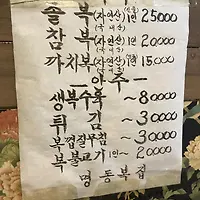 솔복 (자연산) 1인 25000
참복 (자연산) 1인 20000
까치복 (자연산) 1인 15000
— 안주 —
생복수육 ~ 80000
튀김 ~ 30000
복껍질무침 ~ 30000
복불고기 1인 ~ 20000
명동복집